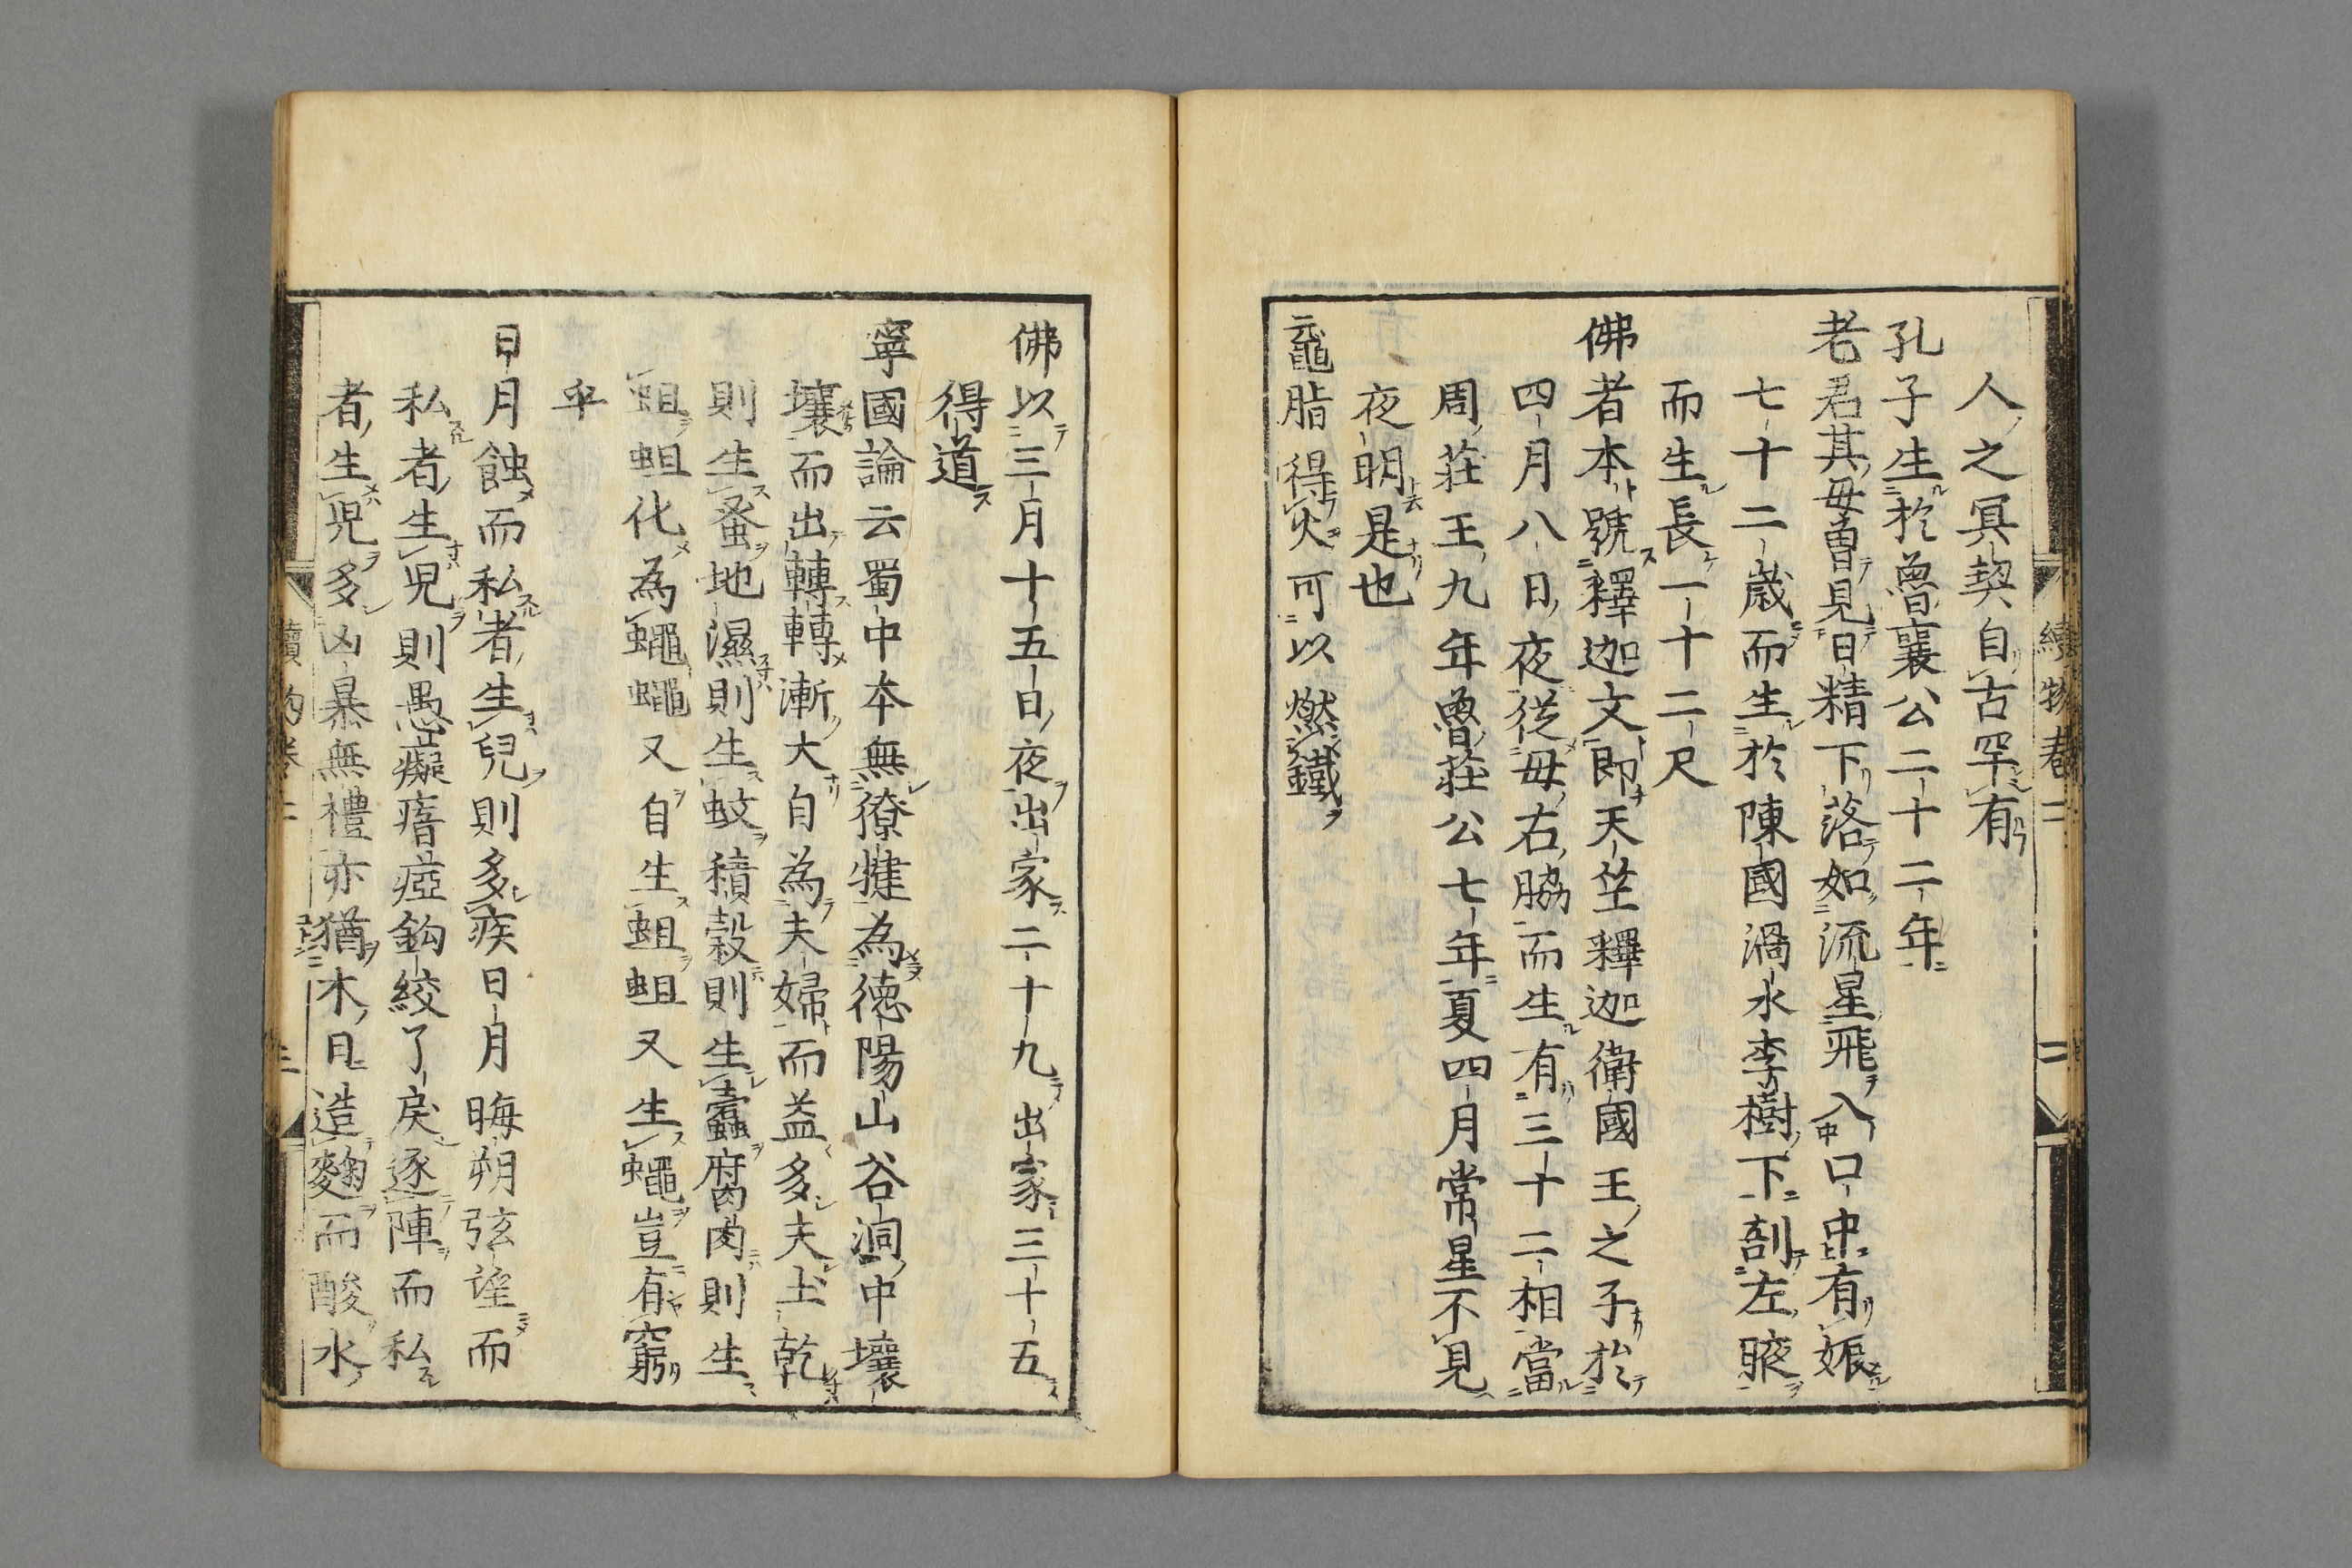 續物巻二
二
人之冥契自古罕有
孔子生於魯襄公二十二年
老君其母曽見日精下落如流星飛入口中有娠
七十二歳而生於陳國渦水李樹下剖左腋
而生長一十二尺
佛者本號釋迦文即天竺釋迦衛國王之子於
四月八日夜從母右脇而生有三十二相當
周莊王九年魯莊公七年夏四月常星不見
夜明是也
龞脂得火可以燃鐵
佛以三月十五日夜出家二十九出家三十五
得道
寧國論云蜀中本無獠犍為德陽山谷洞中壤
壤而出轉轉漸大自為夫婦而益多夫土乾
則生蚤地濕則生蚊積穀則生蠹腐肉則生
蛆蛆化為蠅蠅又自生蛆蛆又生蠅豈有窮
乎
日月蝕而私者生兒則多疾日月晦朔弦望而
私者生兒則愚癡瘖瘂鈎絞了戻逐陣而私
者生兒多凶暴無禮亦猶木日造麴而酸水